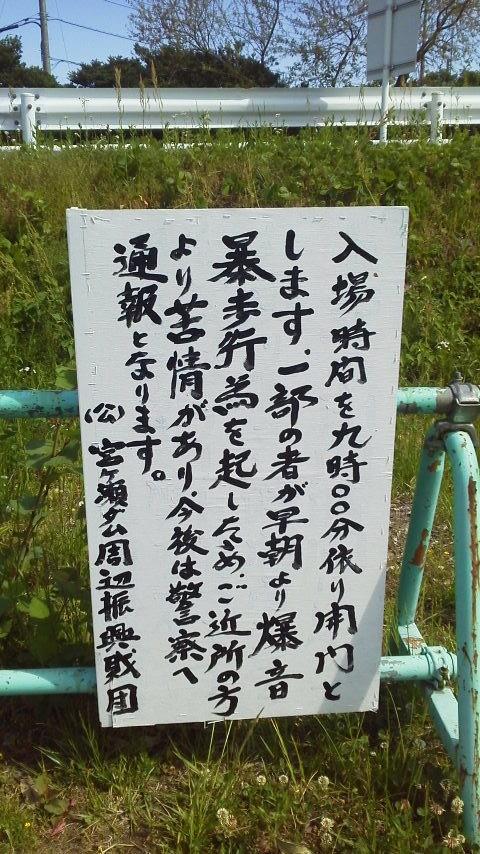 入場時間を九時〇〇分依り開門と
します、一部の者が早朝より爆音
暴歩行為を起しるため、ご近所の方
より苦情があり、今後は警察へ
通報となります。
(公)宮ヶ瀬ダム周辺振興財団